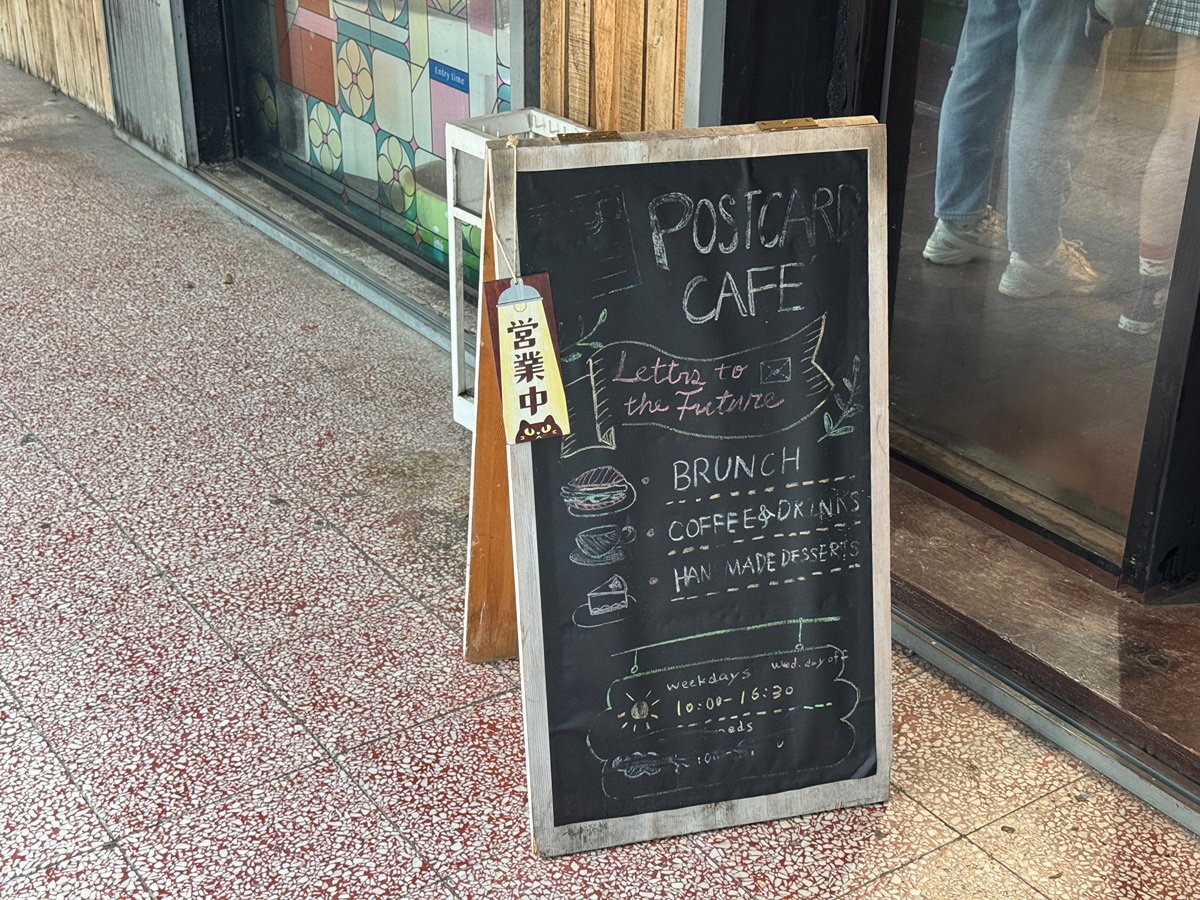 Entry time
POSTCARD
CAFE
営業中
Lettrs to
the Future
BRUNCH
COFFEE&DRINKS
HAN MADE DESSERTS
Wed. day off
weekdays
10:00-16:30